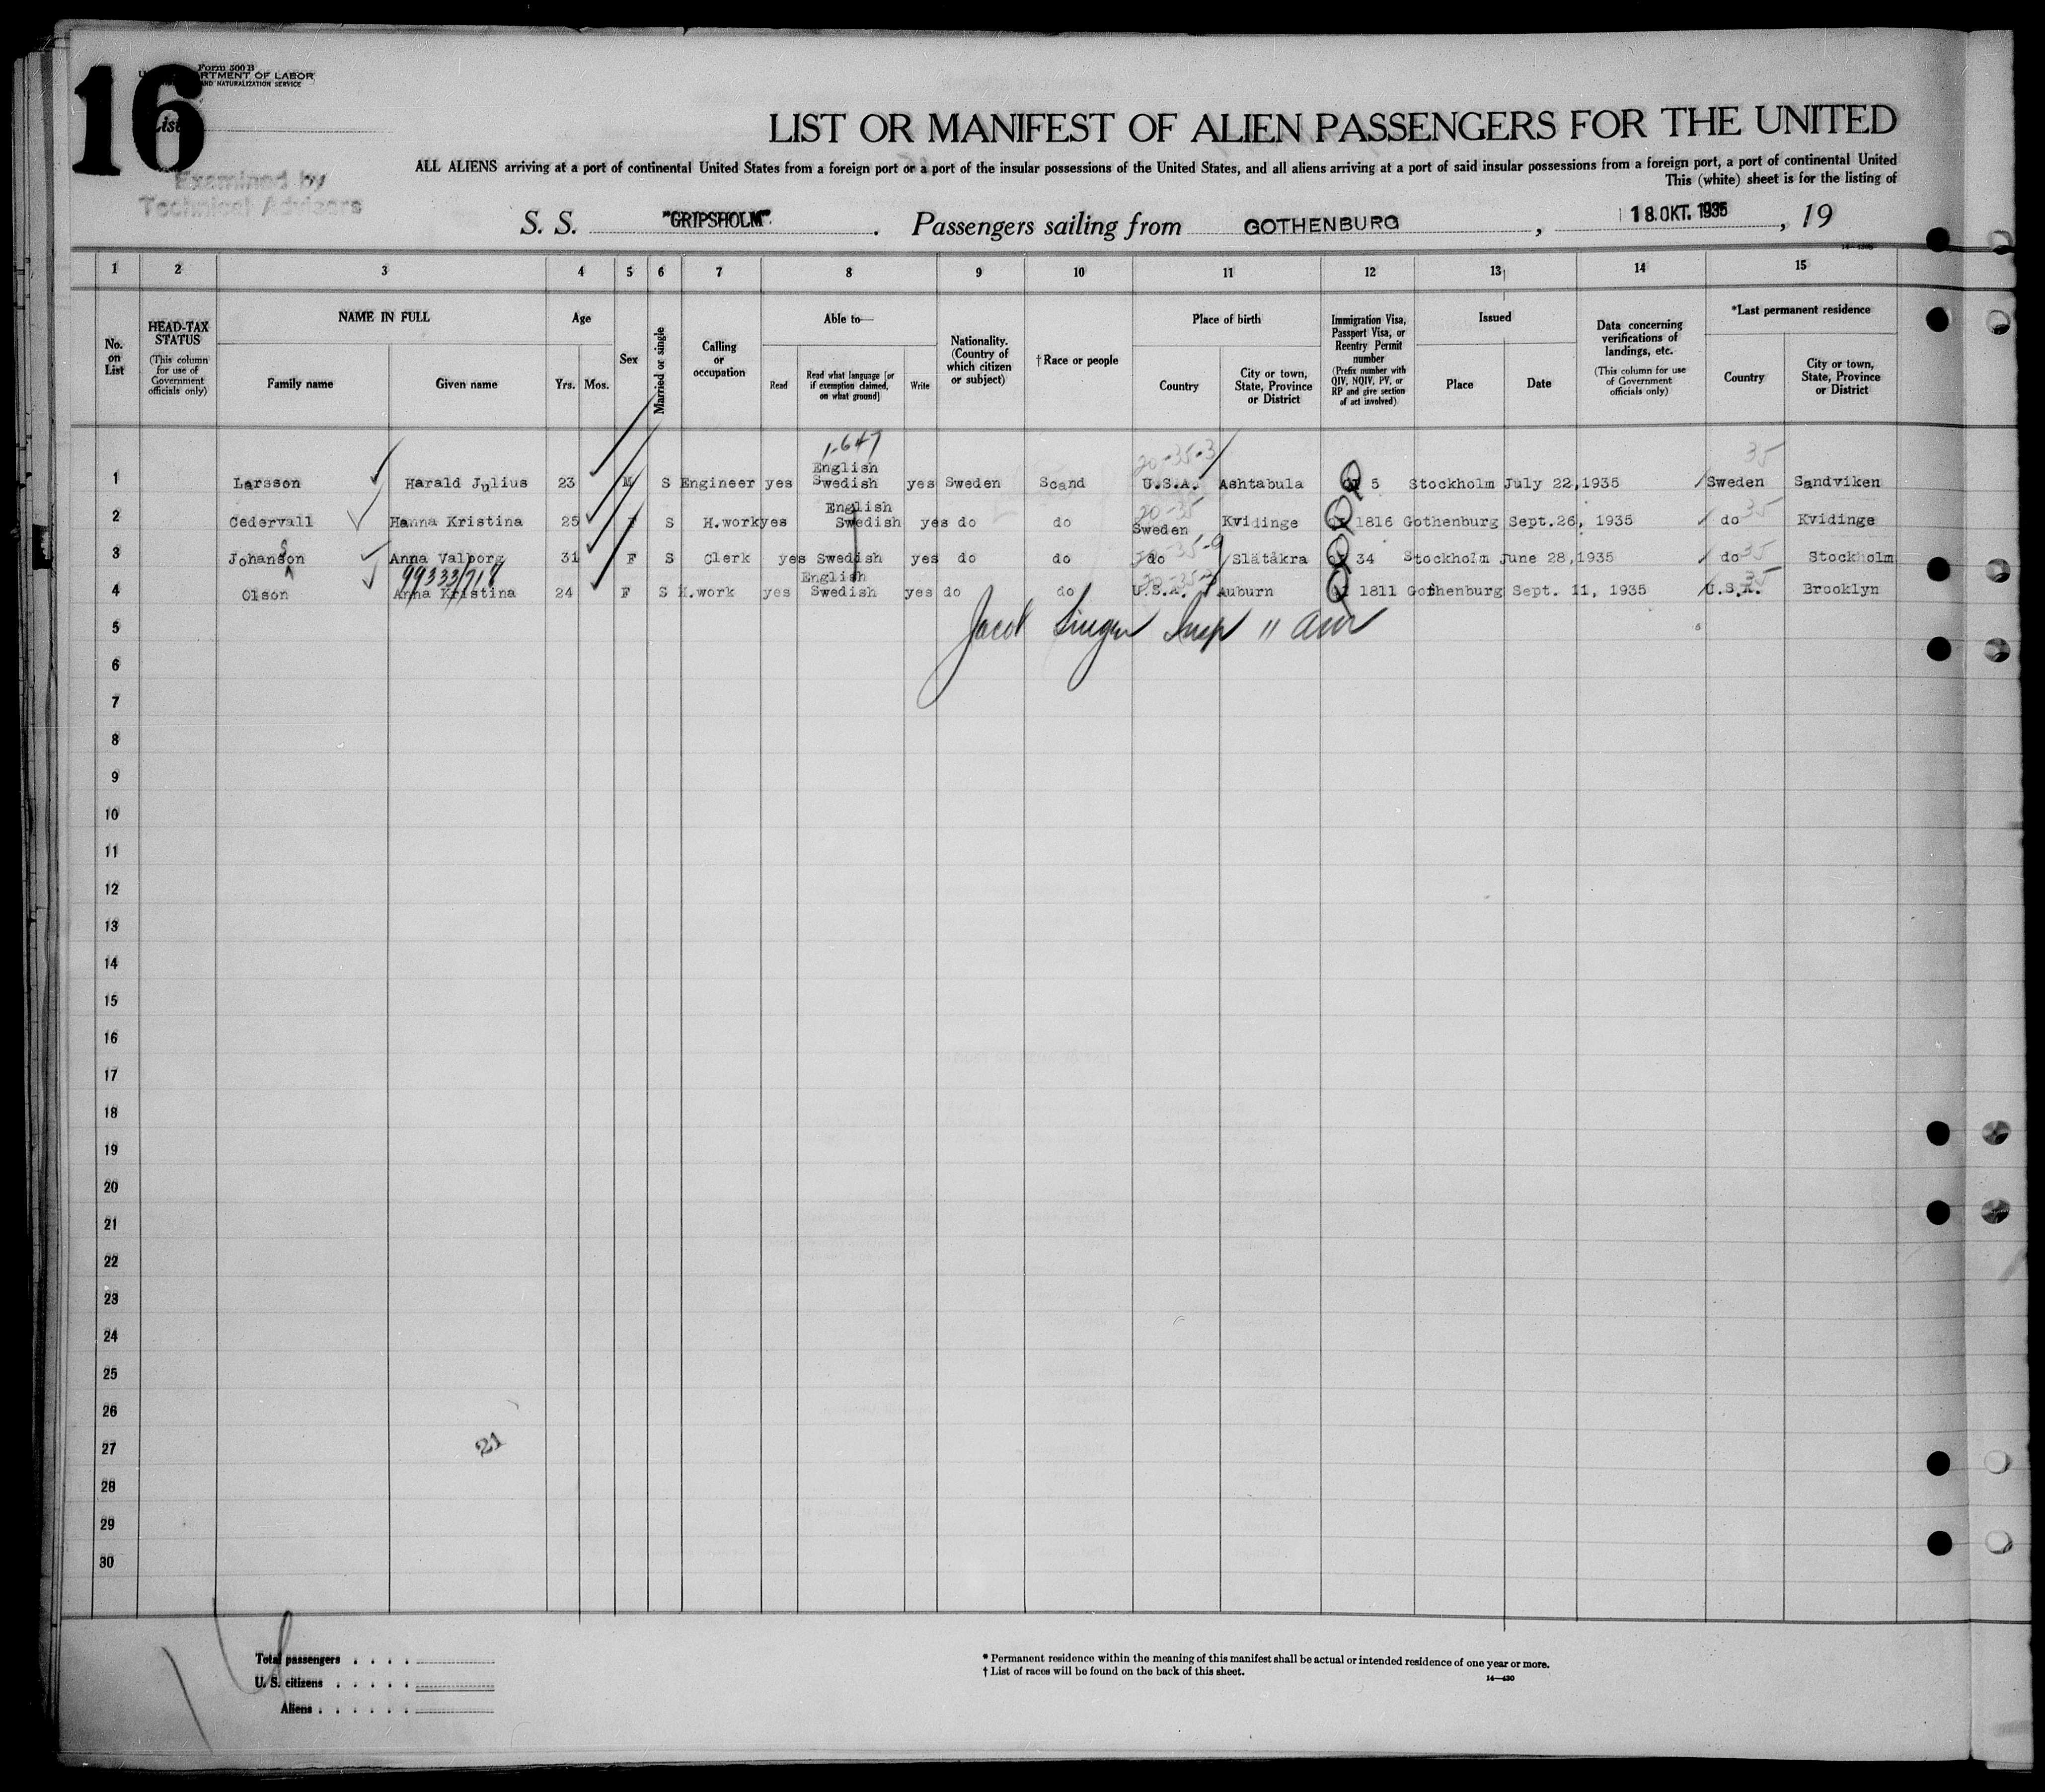 16
Form 500 B
U. DEPARTMENT OF LABOR
AND NATURALIZATION SERVICE
List
Examined by
Technical Advisors
LIST OR MANIFEST OF ALIEN PASSENGERS FOR THE UNITED
ALL ALIENS arriving at a port of continental United States from a foreign port or a port of the insular possessions of the United States, and all aliens arriving at a port of said insular possessions from a foreign port, a port of continental United
This (white) sheet is for the listing of
S. S. "GRIPSHOLM". Passengers sailing from GOTHENBURG, 18. OKT. 1935, 19
1 2 3 4 5 6 7 8 9 10 11 12 13 14 15
No. on List
HEAD-TAX STATUS (This column for use of Government officials only)
NAME IN FULL
Family name Given name
Age
Yrs. Mos.
Sex
Married or single
Calling or occupation
Able to—
Read Read what language [or if exemption claimed, on what ground] Write
Nationality. (Country of which citizen or subject)
†Race or people
Place of birth
Country City or town, State, Province or District
Immigration Visa, Passport Visa, or Reentry Permit number (Prefix number with QIV, NQIV, PV, or RP and give section of act involved)
Issued
Place Date
Data concerning verifications of landings, etc. (This column for use of Government officials only)
*Last permanent residence
Country City or town, State, Province or District
1-647
20-35-3 35
English
1 Larsson Harald Julius 23 M S Engineer yes Swedish yes Sweden Scand U.S.A. Ashtabula 5 Stockholm July 22,1935 Sweden Sandviken
English
20-35 35
2 Cedervall Hanna Kristina 25 F S H.work yes Swedish yes do do Sweden Kvidinge 1816 Gothenburg Sept.26, 1935 do Kvidinge
s
3 Johanson Anna Valborg 31 F S Clerk yes Swedish yes do do do Slätåkra 34 Stockholm June 28,1935 do 35 Stockholm
99333/718
English
4 Olson Anna Kristina 24 F S H.work yes Swedish yes do do U.S.A. Auburn 1811 Gothenburg Sept. 11, 1935 U.S.A. 35 Brooklyn
5 Jacob Singer Insp
6
7
8
9
10
11
12
13
14
15
16
17
18
19
20
21
22
23
24
25
26
27
21
28
29
30
Total passengers . . . .
U. S. citizens . . . . .
Aliens . . . . . .
* Permanent residence within the meaning of this manifest shall be actual or intended residence of one year or more.
† List of races will be found on the back of this sheet.
14—430